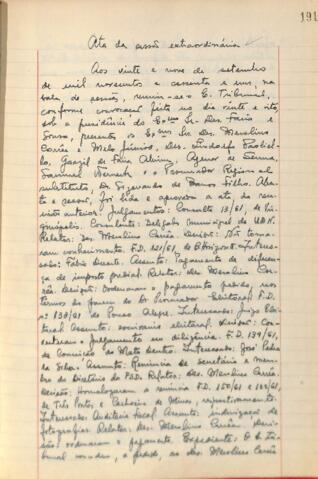 191
Ata da sessão extraordinária
Aos vinte e nove de setembro
de mil novecentos e sessenta e um, na
sala de sessões, reuniu-se o E. Tribunal,
conforme convocação feita no dia vinte e oito,
sob a presidência do Exmo Sr. Des. Faria e
Sousa, presentes os Exmos Srs. Des. Merolino
Corrêa e Melo Júnior, Drs. Lindolfo Paoliel-
lo, Gamil de Faria Alvim, Agenor de Senna,
Samuel Werneck e o Procurador Regional
substituto, Dr. Sizenando de Barros Filho. Aber-
ta a sessão, foi lida e aprovada a ata da reu-
nião anterior. Julgamentos: Consulta 13/61, de
Consulente: Delegado municipal da U.D.N.
Relator: des. Merolino Corrêa Decisão: Não toma-
ram conhecimento. F.D. 121/61, de B. Horizonte. Interes-
sado: Fábio Duarte. Assunto: Pagamento de diferen-
ça de imposto predial. Relator: des. Merolino Cor-
rêa. Decisão: Ordenaram o pagamento pedido, nos
termos do parecer do Dr Procurador Eleitoral. F.D.
nº 138/61 de Pouso Alegre. Interessado: Juízo Elei-
toral Assunto: Decisão: Con-
verteram o julgamento em diligência. F.D. 139/61,
de Conceição do Mato Dentro. Interessado: José Pedro
da Silva. Assunto: Renúncia de secretário e mem-
bro do diretório do P.S.D. Relator: des. Merolino Corrêa.
Decisão: Homologaram a renúncia F.D. 150/61 e
de Três Pontos e Cachoeira de Minas, respectivamente.
Interessado: Auditoria fiscal Assunto: indenização de
fotografias Relator: des. Merolino Corrêa. Deci-
são: ordenaram o pagamento. Expediente: O E. Tri-
bunal concedeu, a pedido, ao des. Merolino Corrêa